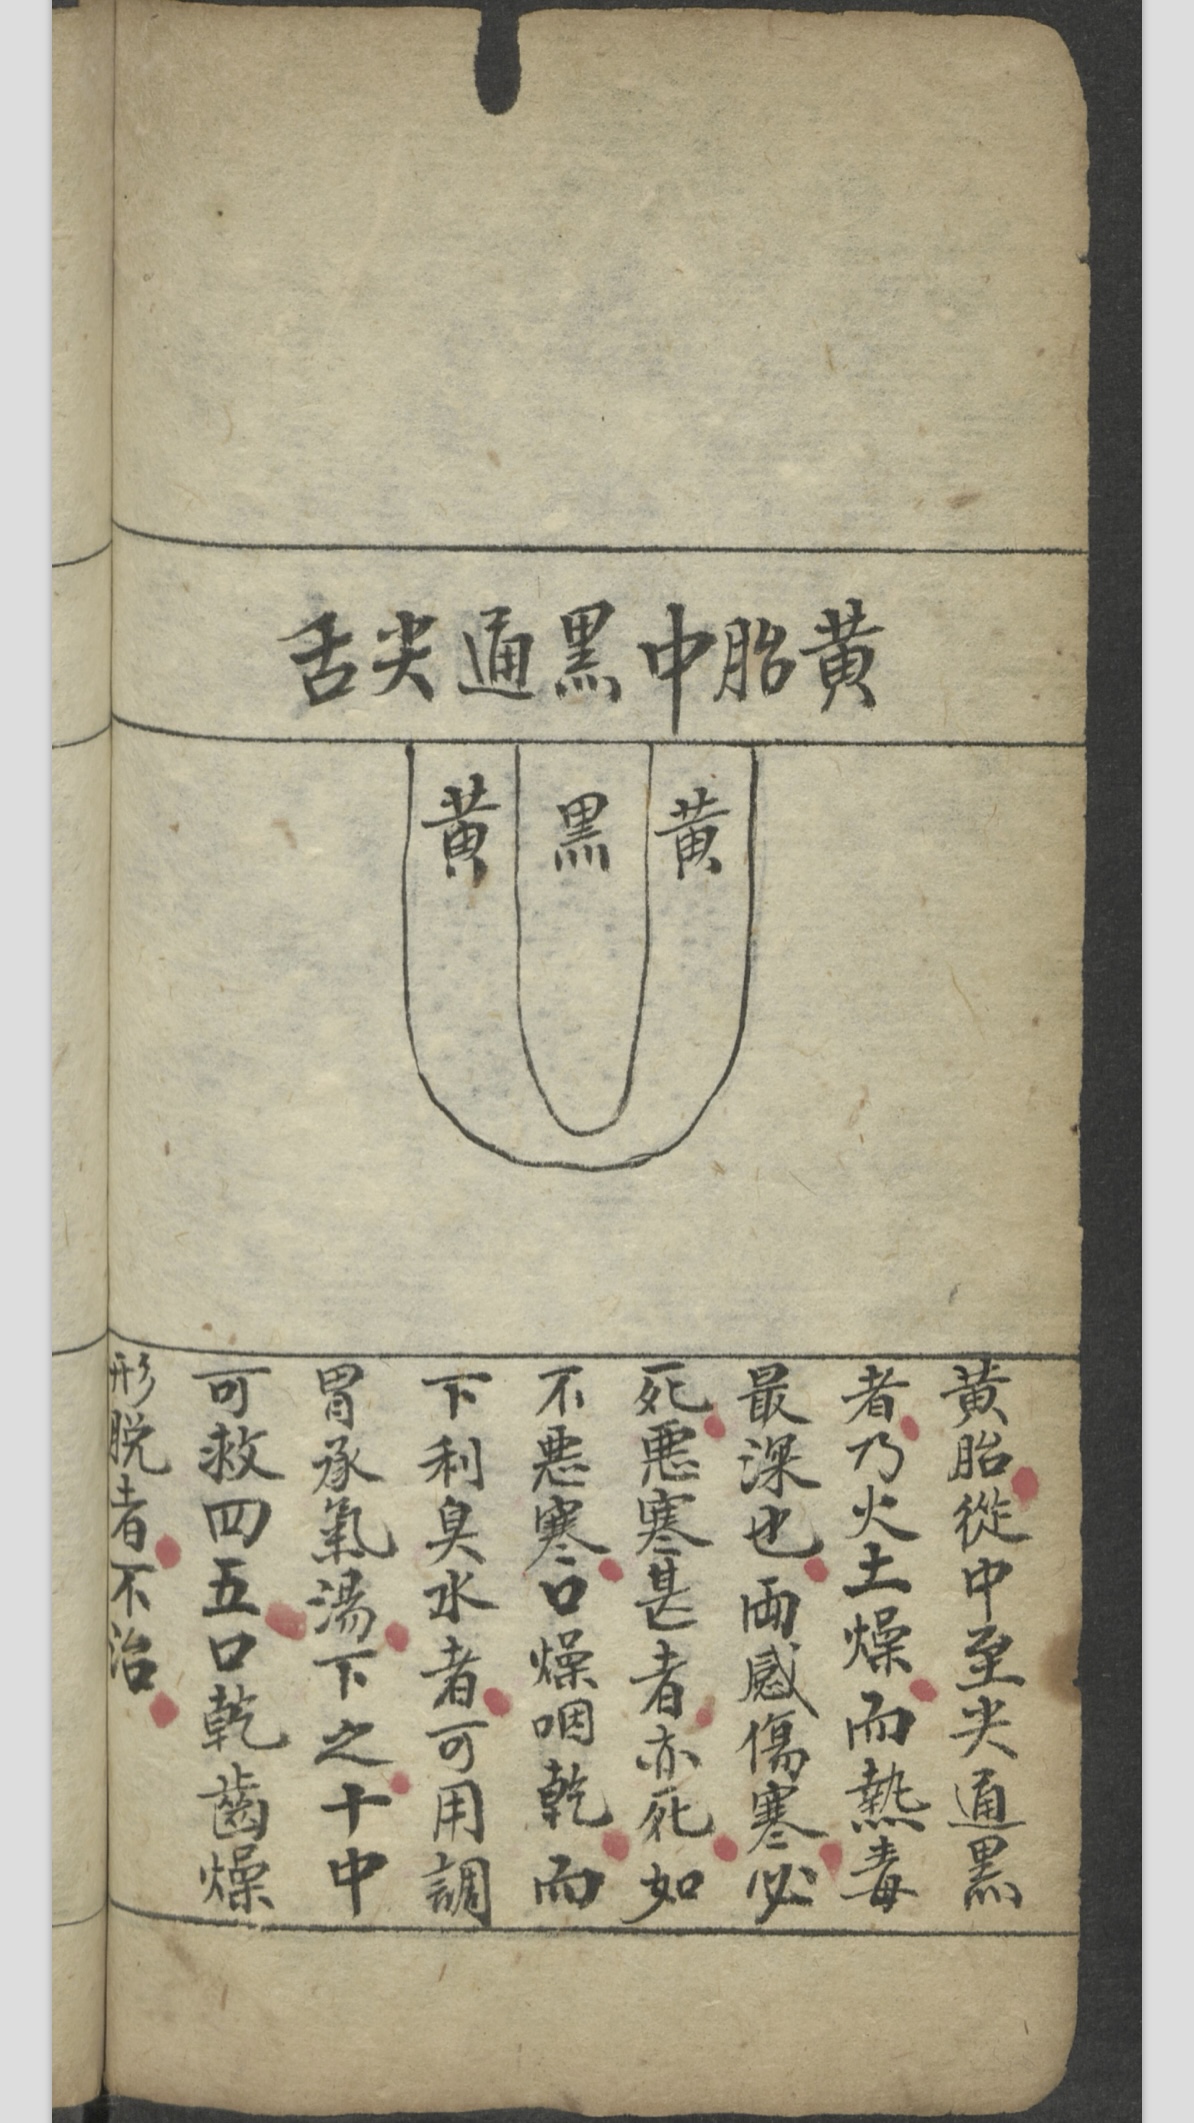 黄胎中黒通尖舌
黄 黒 黄
黄胎從中至尖通黒
者乃火土燥而熱毒
最深也両感傷寒必
死悪寒甚者亦死如
不悪寒口燥咽乾而
下利臭水者可用調
胃承氣湯下之十中
可救四五口乾齒燥
形脱者不治